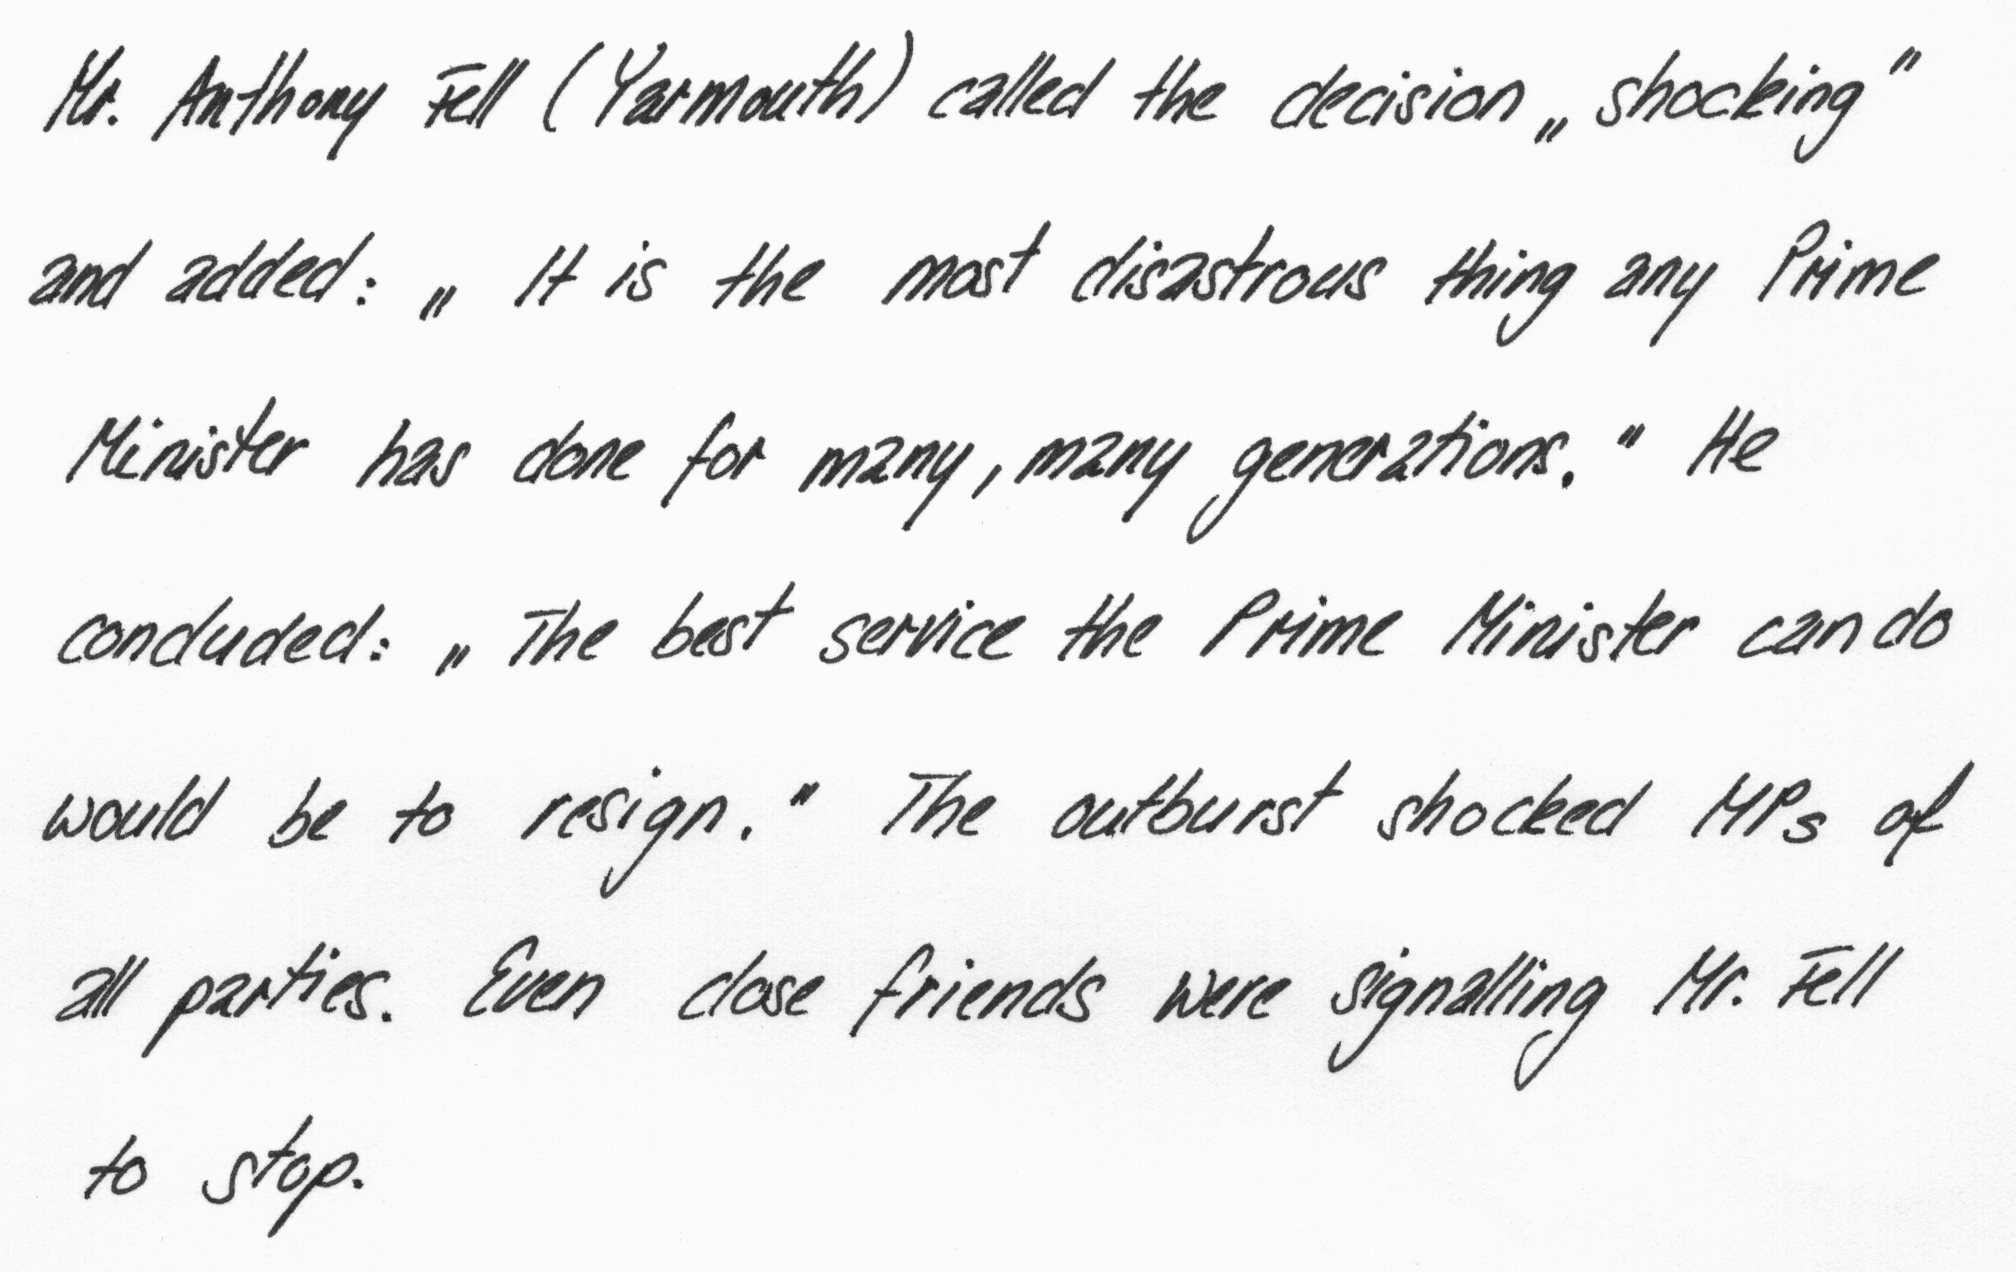 Mr. Anthony Fell (Yarmouth) called the decision „shocking"
and added: „It is the most disastrous thing any Prime
Minister has done for many, many generations." He
concluded: „The best service the Prime Minister can do
would be to resign." The outburst shocked MPs of
all parties. Even close friends were signalling Mr. Fell
to stop.